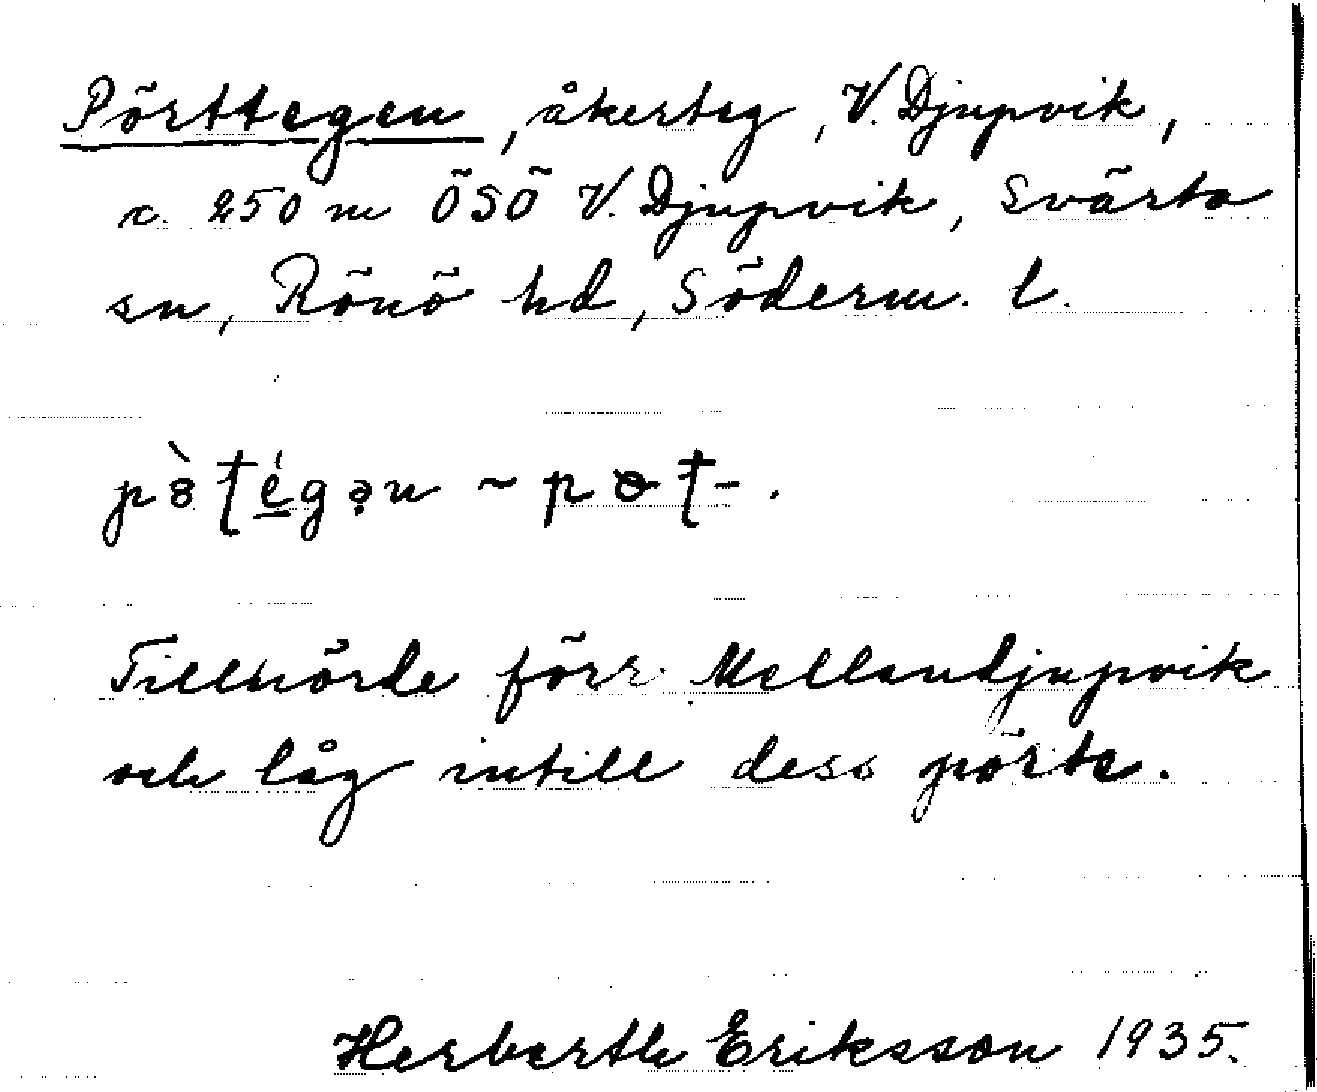 Pörttegen, åkerteg, V. Djupvik,
c. 250 m ÖSÖ V. Djupvik, Svärta
sn, Rönö hd, Söderm. l.
Tillhörde förr Mellandjupvik
och låg intill dess pörte.
Herberth Eriksson 1935.